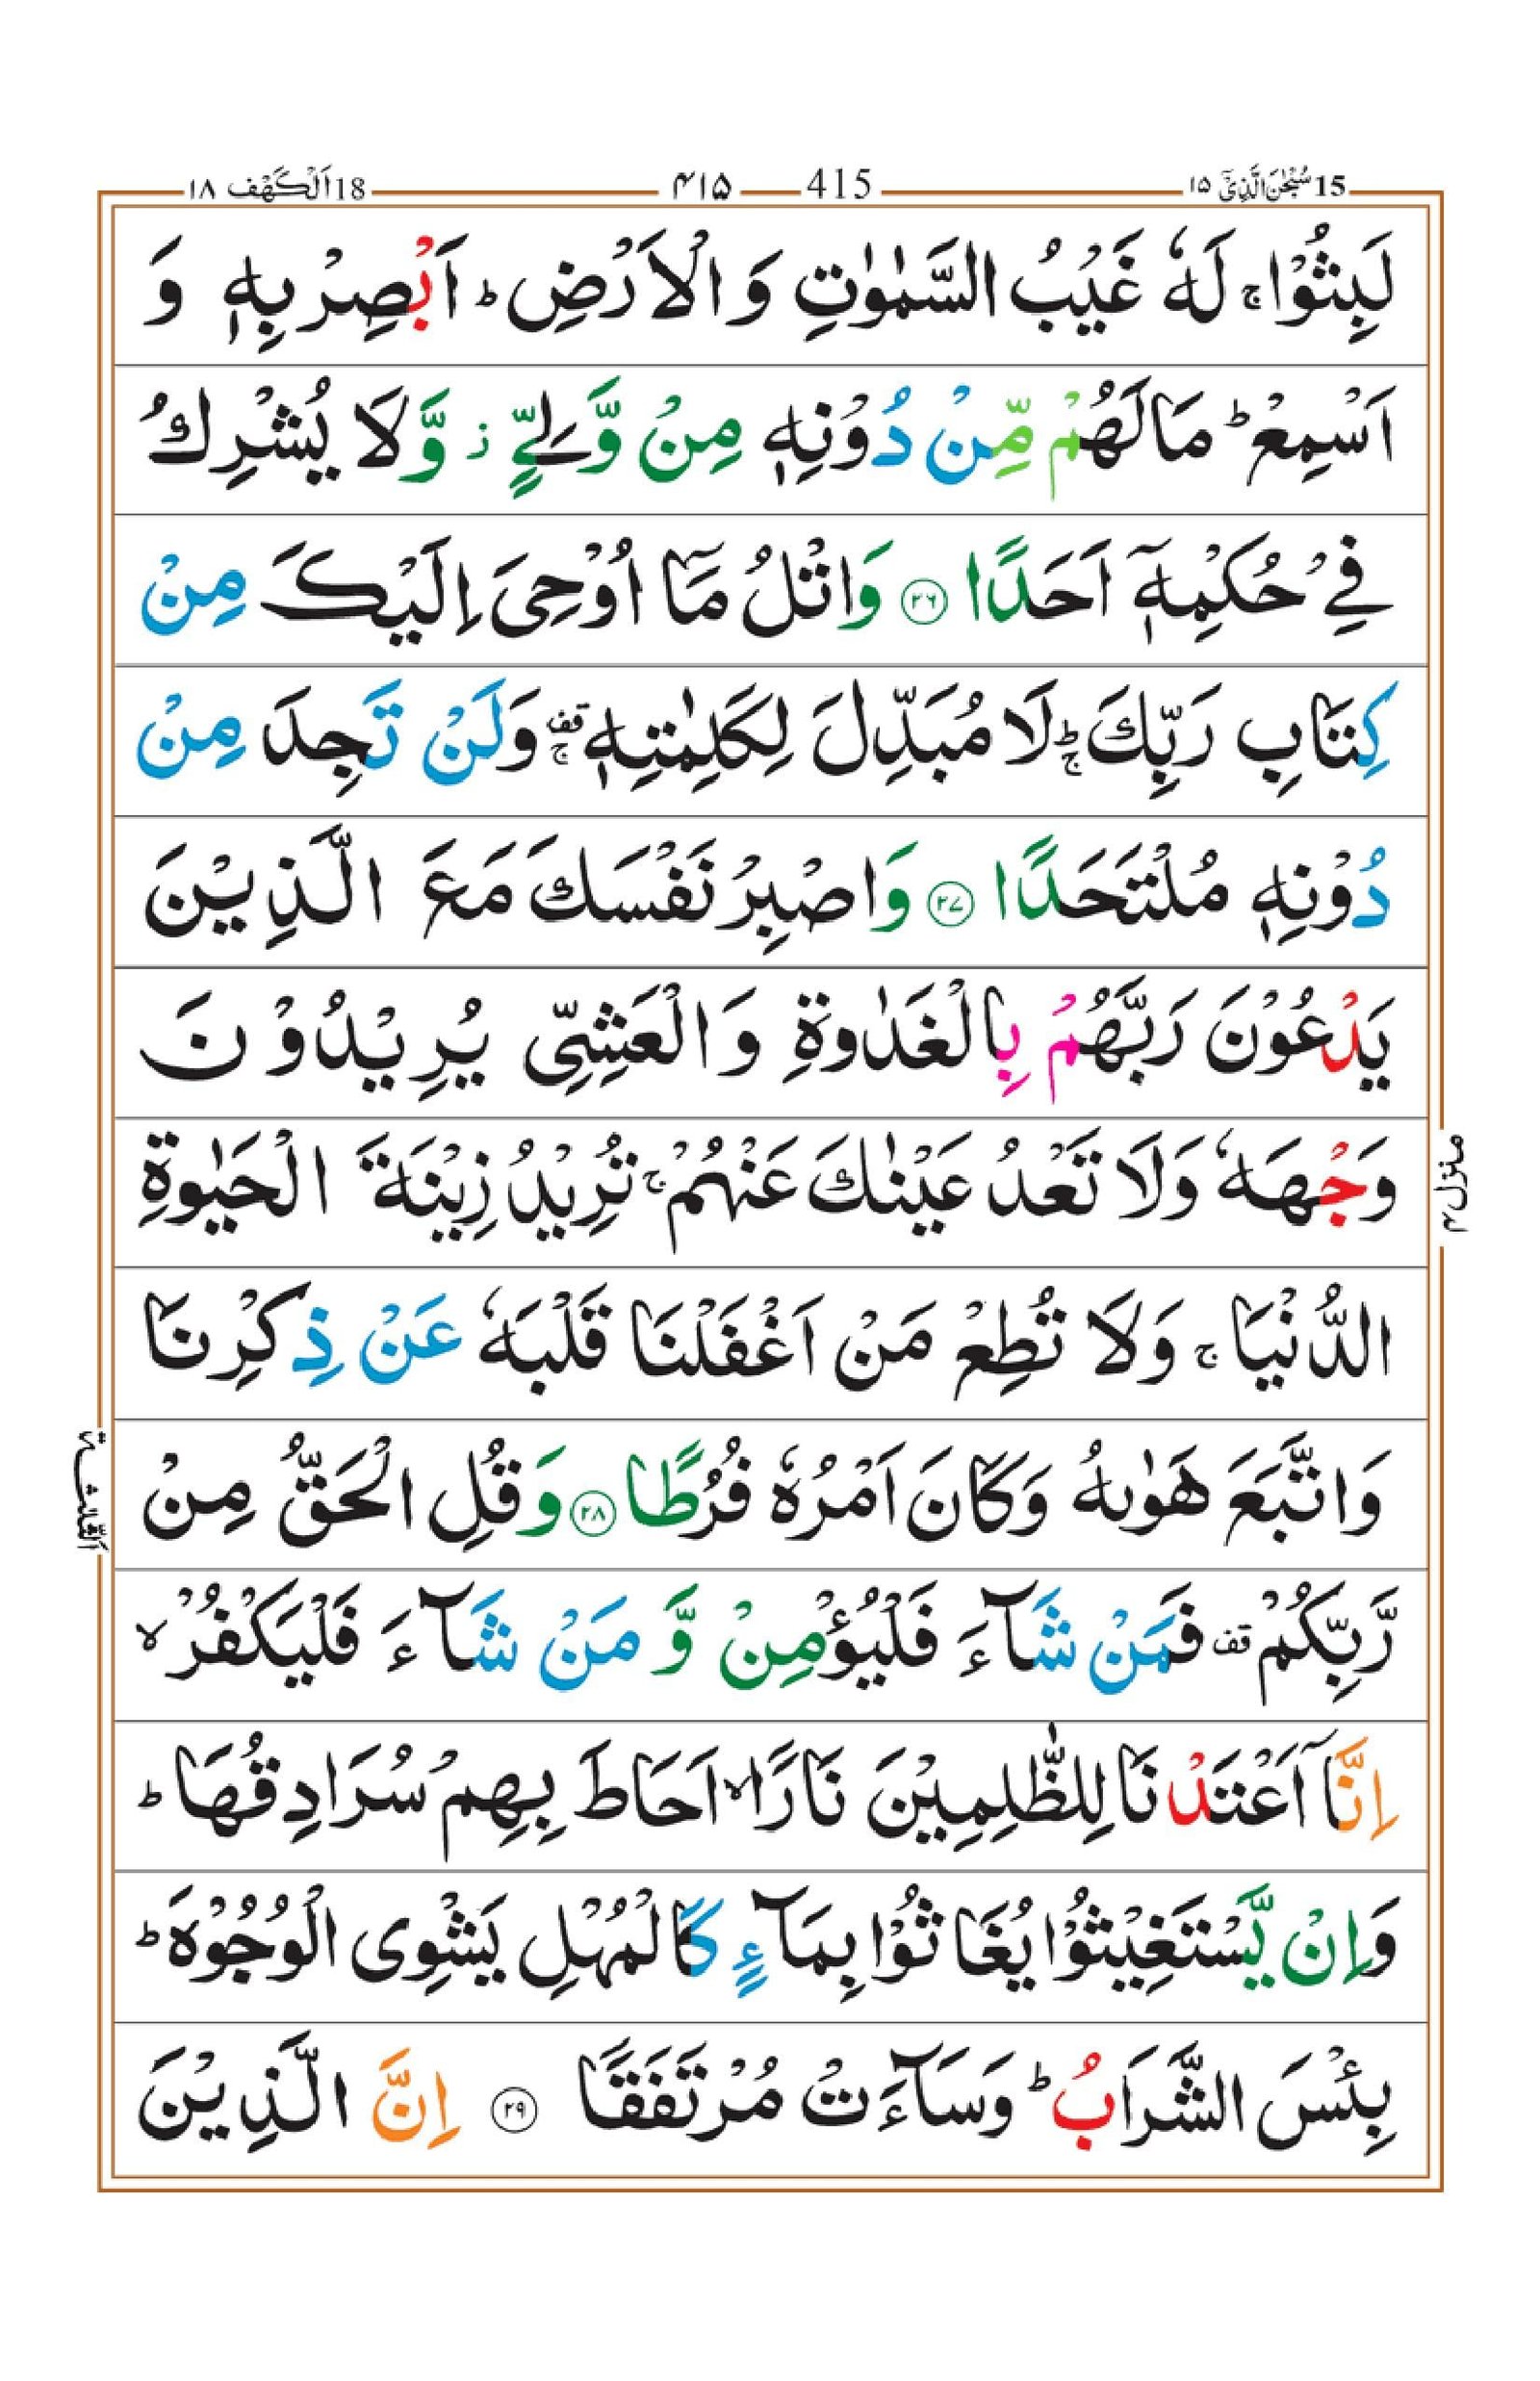 15 سُبْحٰنَ الَّذِيْٓ ١٥
415 ۴۱۵
18 اَلْكَهْف ١٨
لَبِثُوْا ۚ لَهٗ غَيْبُ السَّمٰوٰتِ وَ الْاَرْضِ ؕ اَبْصِرْ بِهٖ وَ
اَسْمِعْ ؕ مَا لَهُمْ مِّنْ دُوْنِهٖ مِنْ وَّلِيٍّ ؗ وَّ لَا يُشْرِكُ
فِيْ حُكْمِهٖٓ اَحَدًا ۝٢٦ وَاتْلُ مَاۤ اُوْحِيَ اِلَيْكَ مِنْ
كِتَابِ رَبِّكَ ؕۚ لَا مُبَدِّلَ لِكَلِمٰتِهٖ ۚقف وَلَنْ تَجِدَ مِنْ
دُوْنِهٖ مُلْتَحَدًا ۝٢٧ وَاصْبِرْ نَفْسَكَ مَعَ الَّذِيْنَ
يَدْعُوْنَ رَبَّهُمْ بِالْغَدٰوةِ وَالْعَشِيِّ يُرِيْدُوْنَ
وَجْهَهٗ وَلَا تَعْدُ عَيْنٰكَ عَنْهُمْ ۚ تُرِيْدُ زِيْنَةَ الْحَيٰوةِ
الدُّنْيَا ۚ وَلَا تُطِعْ مَنْ اَغْفَلْنَا قَلْبَهٗ عَنْ ذِكْرِنَا
وَاتَّبَعَ هَوٰىهُ وَكَانَ اَمْرُهٗ فُرُطًا ۝٢٨ وَقُلِ الْحَقُّ مِنْ
رَّبِّكُمْ قف فَمَنْ شَآءَ فَلْيُؤْمِنْ وَّ مَنْ شَآءَ فَلْيَكْفُرْ ۙ
اِنَّاۤ اَعْتَدْنَا لِلظّٰلِمِيْنَ نَارًا ۙ اَحَاطَ بِهِمْ سُرَادِقُهَا ؕ
وَاِنْ يَّسْتَغِيْثُوْا يُغَاثُوْا بِمَآءٍ كَالْمُهْلِ يَشْوِى الْوُجُوْهَ ؕ
بِئْسَ الشَّرَابُ ؕ وَسَآءَتْ مُرْتَفَقًا ۝٢٩ اِنَّ الَّذِيْنَ
منزل۴
الثلٰثة